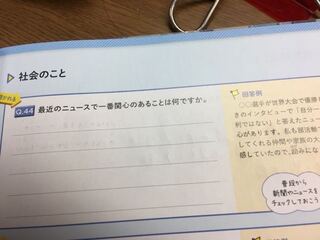 社会のこと
Q.44 最近のニュースで一番関心のあることは何ですか。
回答例
○○選手が世界大会で優勝
きのインタビューで「自分一
利ではない」と答えたニュー
心があります。私も部活動で
してくれる仲間や家族の大
感していたので、励みにな
普段から
新聞やニュースを
チェックしておこう